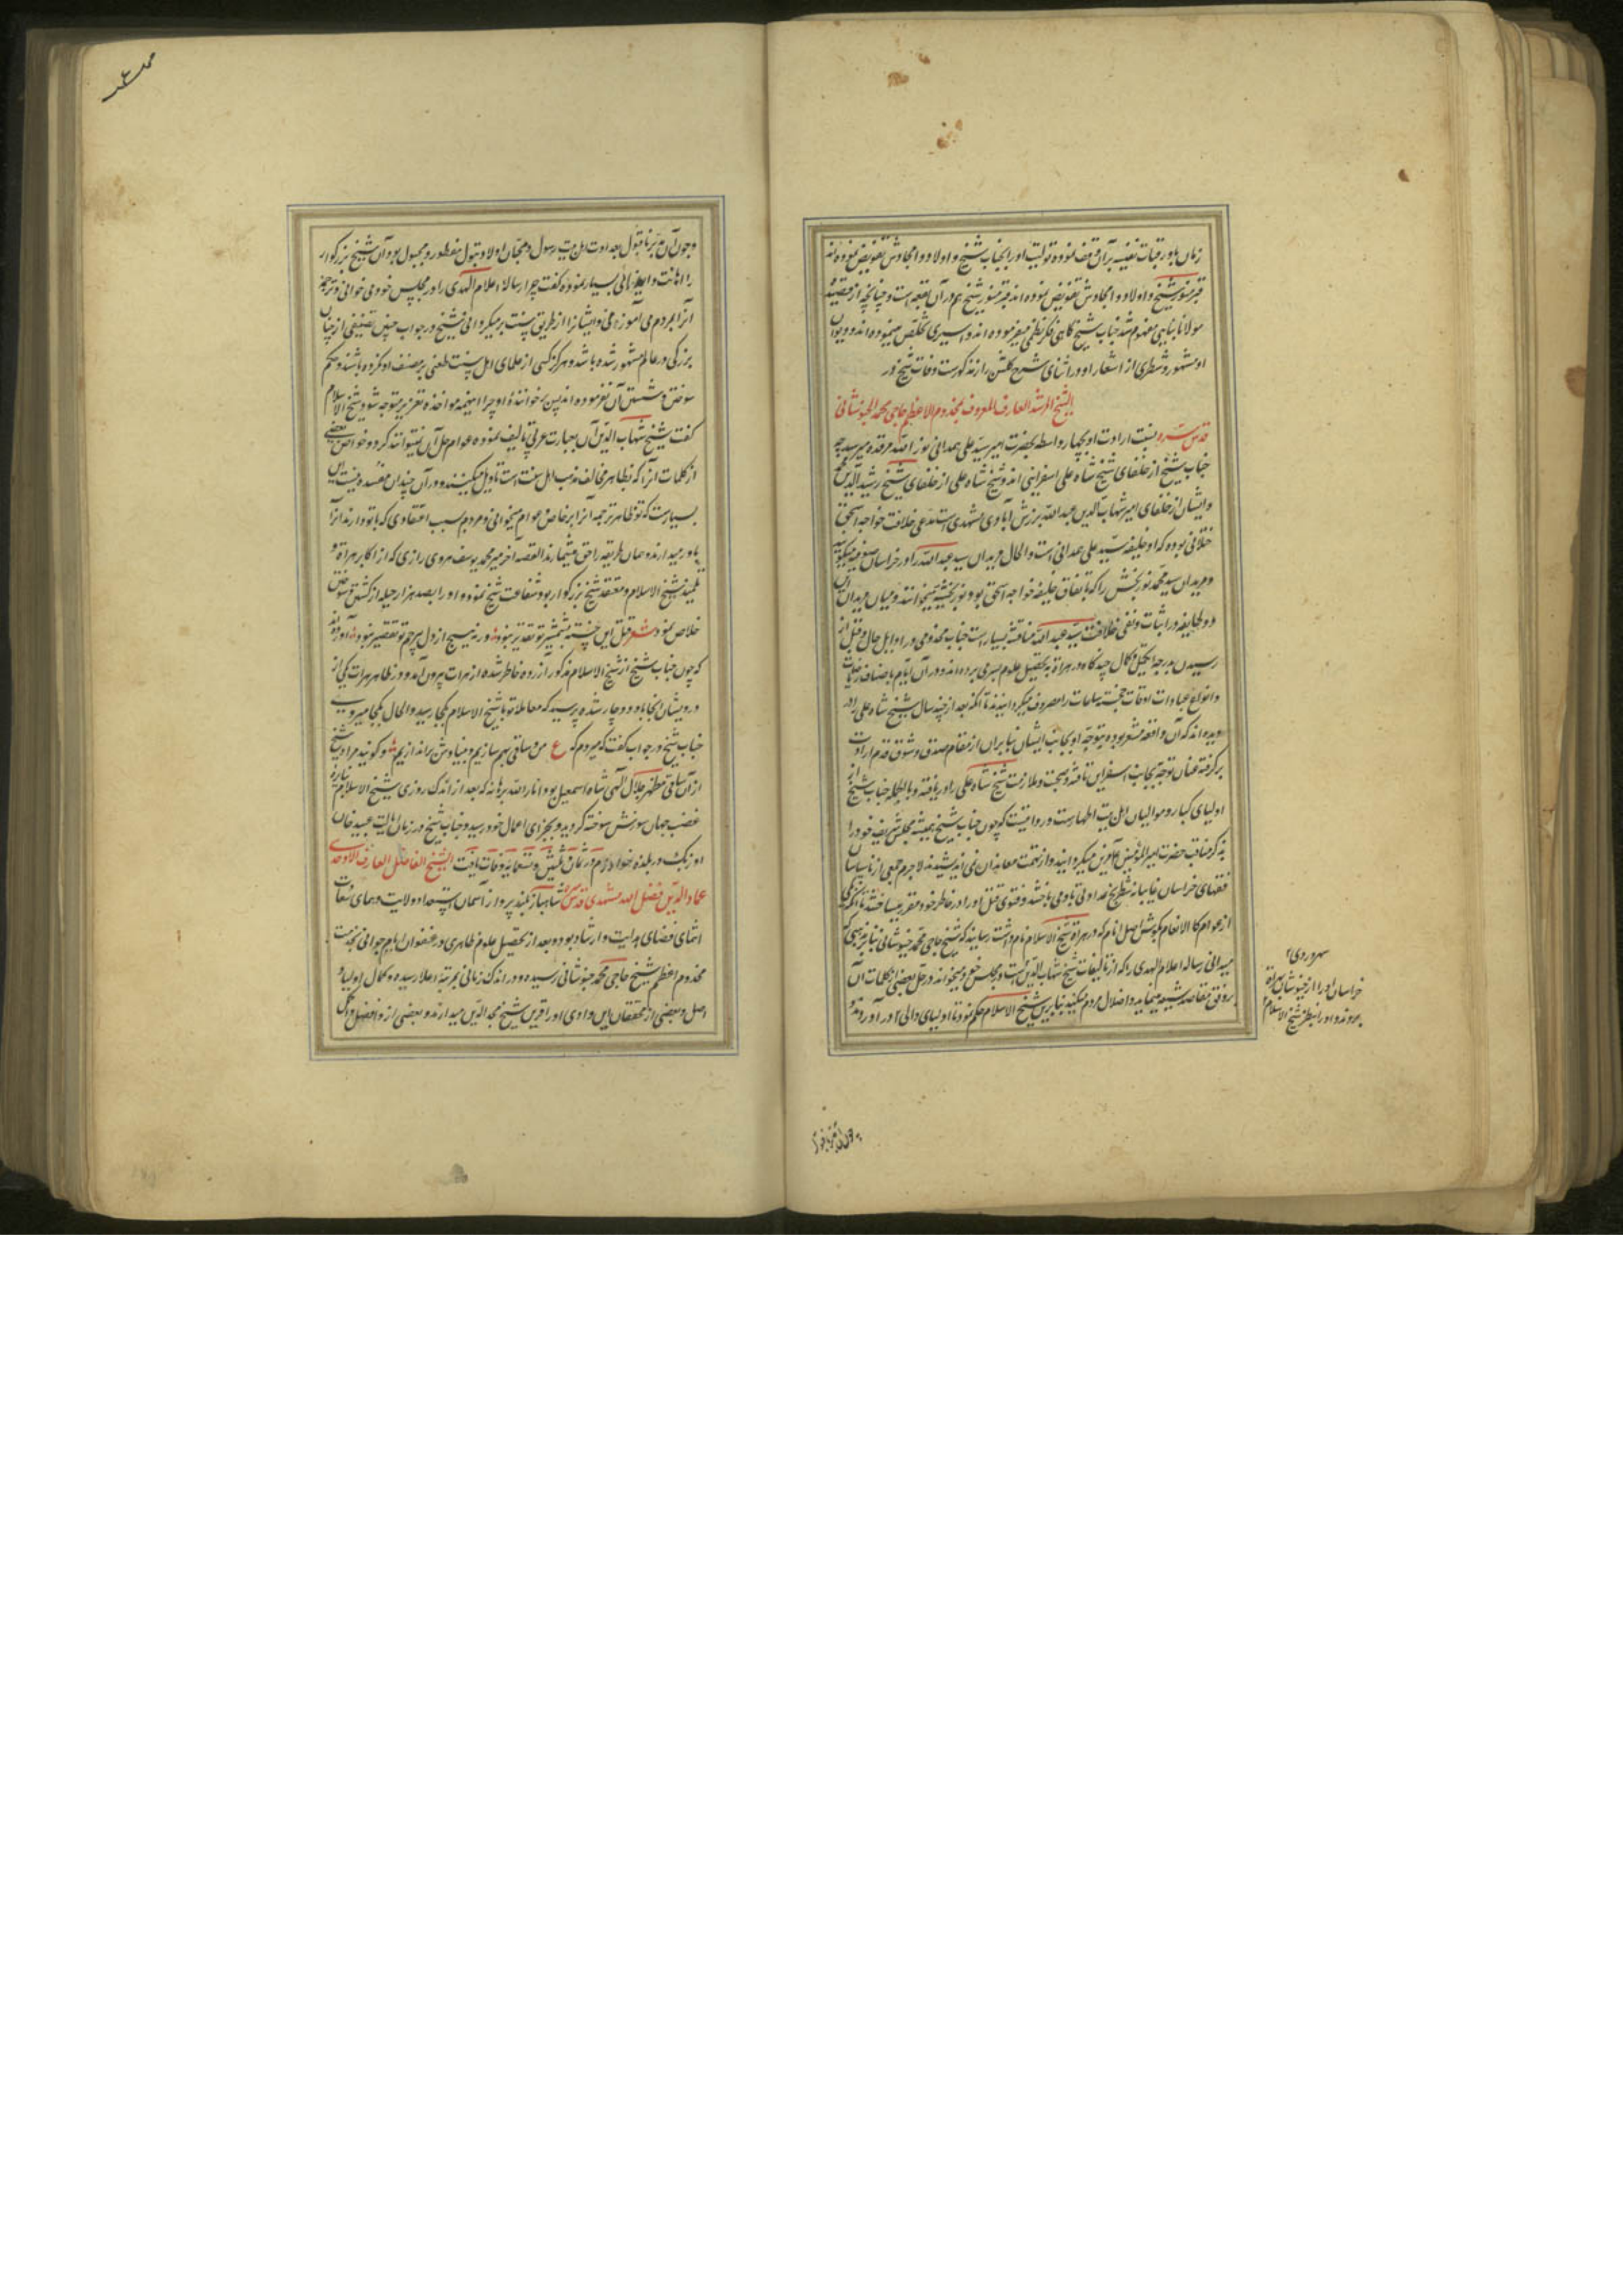 زمان باو رقبات نفیسه بر آن وقف نموده تولیت او را بجناب شیخ و اولاد و امجادش تفویض نموده‌اند
قبر منور شیخ و اولاد و امجادش تفویض نموده‌اند قبر منور شیخ هم در آن بقعه است و چنانچه از قصیده
مولانا بنایی مفهوم شد جناب شیخ گاهی فکر نظمی میفرموده‌اند و اسیری تخلص مینموده‌اند و دیوان
او مشهور و شطری از اشعار او در اثنای شرح گلشن راز مذکورست وفات شیخ در
الشیخ المرشد العارف المعروف بمخدوم الاعظم حاجی محمد الخبوشانی
قدس سره نسبت ارادت او بچهار واسطه بحضرت امیر سید علی همدانی نور الله مرقده میرسد چه
جناب شیخ از خلفای شیخ شاه علی اسفراینی‌اند و شیخ شاه علی از خلفای شیخ رشید الدین محمد
و ایشان از خلفای امیر شهاب الدین عبد الله برزش آبادی مشهدی‌ست که مدعی خلافت خواجه اسحق
ختلانی بوده که او خلیفه سید علی همدانی است و الحال مریدان سید عبد الله را در خراسان صوفیه میگویند
و مریدان سید محمد نوربخش را که باتفاق خلیفه خواجه اسحق بود نوربخشیه میخوانند و میان مریدان این
دو طایفه در اثبات و نفی خلافت سید عبد الله مناقشه بسیار است جناب مخدومی در اوایل حال و قبل از
رسیدن بدرجه تکمیل و کمال چندگاه در هراة به تحصیل علوم بسر می‌برده‌اند و در آن ایام باصناف ریاضات
و انواع عبادات اوقات خجسته ساعات را مصروف میگردانیدند تا آنکه بعد از چند سال شیخ شاه علی را در
دیده‌اند که آن واقعه مشعر بوده بتوجه او بجانب ایشان بنابر آن از مقام صدق و شوق قدم ارادت
برگرفته عنان توجه بجانب اسفراین تافته و صحبت و ملازمت شیخ شاه علی را دریافته و بالجمله جناب شیخ از
اولیای کبار و موالیان اهل بیت اطهارست و روایتست که چون جناب شیخ همیشه مجلس شریف خود را
بذکر مناقب حضرت امیر المؤمنین علی مزین میگردانید و از تهمت معاندان نمی‌اندیشید لاجرم جمعی از ناسپاسان
فقهای خراسان غایبانه شطرنج عداوتی با وی باخته فتوی قتل او را در خاطر خود مقرر میساختند تا آنکه یکی
از عوام کالانعام بگوش اصل نام که در هراة شیخ الاسلام نام داشت رسانید که شیخ حاجی محمد خبوشانی بنابر مذهبی که
میدانی رساله اعلام الهدی را که از تالیفات شیخ شهاب الدین است در مجلس خود میخواند و در حل بعضی از کلمات آن
بر وفق مقاصد شیعه مینماید و اضلال مردم میکند بنابرین شیخ الاسلام حکم نمود تا اولیای والی
سهروردی
خراسان او را از خبوشان بهراة
بردند و او را بنظر شیخ الاسلام
و چون آن بعداوت اهل بیت رسول و محبان اولاد بتول مفطور و مجبول بود آن شیخ بزرگوار
را اهانت و ایذای بسیار نموده گفت چرا رساله اعلام الهدی را در مجلس خود می‌خوانی و ترجمه
آنرا بمردم می‌آموزی و ایشانرا از طریق سنت برمیگردانی شیخ در جواب چنین تصنیفی از چنان
بزرگی در عالم مشهور شده باشد و هرگز کسی از علمای اهل سنت طعنی بر مصنف او نکرده باشد و حکم
سوختن و شستن آن نفرموده‌اند پس خوانندهٔ او چرا اینهمه مواخذه و تعزیر متوجه شود شیخ الاسلام
گفت شیخ شهاب الدین آن بعبارت عربی تالیف نموده عوام حل آن نمیتوانند کرد و خواص بعضی
از کلمات آنرا که بظاهر مخالف مذهب اهل سنت است تاویل میکنند و در آن چندان مفسده نیست این
بسیارست که تو ظاهر ترجمه آنرا بر خاص و عوام میخوانی و مردم بسبب اعتقادی که با تو دارند آنرا
باور میدارند و همان طریقه را حق میشمارند القصه آخر میر محمد یوسف هروی رازی که از اکابر هراة و
تلمیذ شیخ الاسلام و معتقد شیخ بزرگوار بود شفاعت شیخ نموده و او را بصد هزار حیله از کشتن و سوختن
خلاص نمود شعر قتل این خسته بشمشیر تو تقدیر نبود ورنه هیچ از دل بیرحم تو تقصیر نبود آورده‌اند
که چون جناب شیخ از شیخ الاسلام مذکور آزرده خاطر شده از هرات بیرون آمد و در ظاهر هرات یکی از
درویشان آنجا باو دوچار شده پرسید که معامله تو با شیخ الاسلام بکجا رسید و الحال بکجا میروی
جناب شیخ در جواب گفت که میروم که ع من و ساقی بهم سازیم و بنیادش براندازیم و گویند مراد شیخ
از آن ساقی مظهر جلال الهی شاه اسمعیل بود انار الله برهانه که بعد از اندک روزی شیخ الاسلام بنایره
غضب جهان سوزش سوخته گردید و بجزای اعمال خود رسید و جناب شیخ در زمان ایالت عبید خان
اوزبک در بلده خوارزم در ثمان و ثلثین و تسعمایه وفات یافت الشیخ الفاضل العارف الاوحدی
عماد الدین فضل الله مشهدی قدس سره شاهباز بلند پرواز آسمان استعداد ولایت و همای سعادت
انتمای فضای هدایت و ارشاد بود و بعد از تحصیل علوم ظاهری در عنفوان ایام جوانی بخدمت
مخدوم اعظم شیخ حاجی محمد خبوشانی رسیده و در اندک زمانی بمرتبه اعلا رسیده و کمال اولیا و
اصل و بعضی از محققان این وادی او را قرین شیخ مجد الدین میدارند و بعضی ازو افضل و اکمل